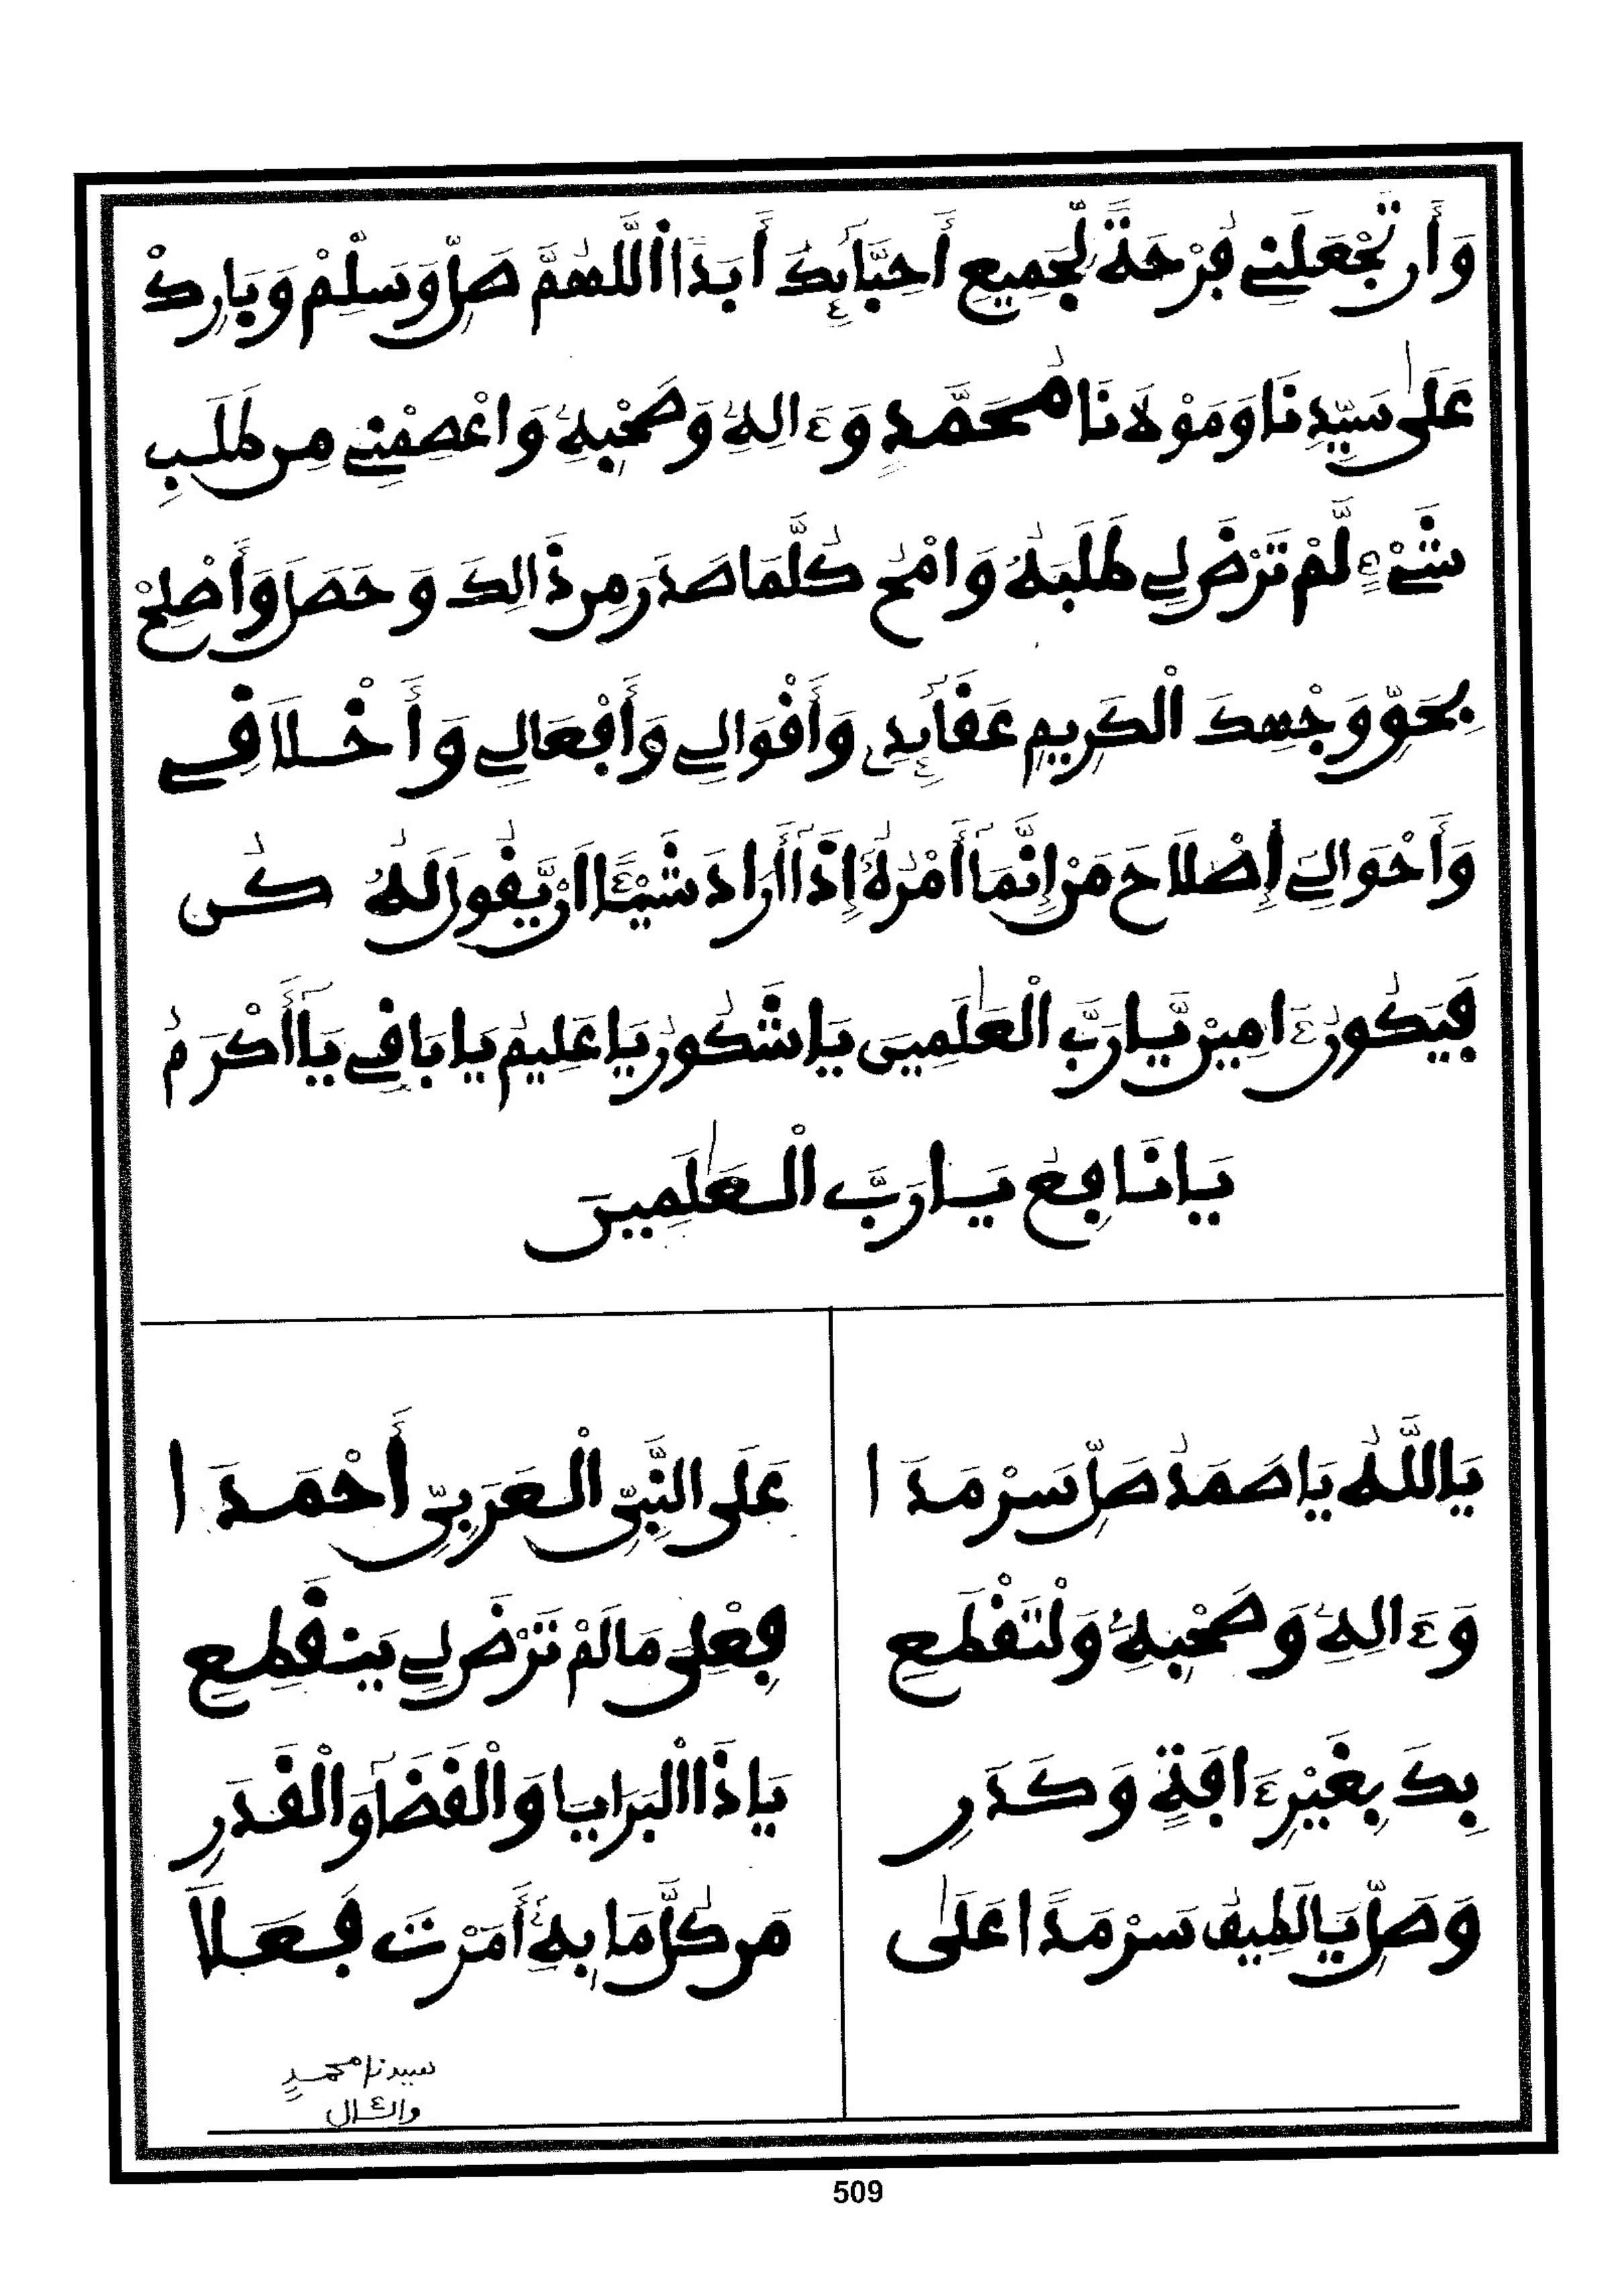 وَأَن تَجْعَلَنِے فَرْحَةً لِّجَمِيعِ أَحِبَّآئِكَ أَبَدًا اللَّهُمَّ صَلِّ وَسَلِّمْ وَبَارِكْ
عَلَىٰ سَيِّدِنَا وَمَوْلَانَا مُحَمَّدٍ وَءَالِهِۦ وَصَحْبِهِۦ وَاعْصِمْنِے مِن طَلَبِ
شَےْءٍ لَّمْ تَرْضَ لِے طَلَبَهُۥ وَامْحُ كُلَّمَا صَدَرَ مِن ذَالِكَ وَحَصَلَ وَأَصْلِحْ
بِحَقِّ وَجْهِكَ الْكَرِيمِ عَقَآئِدِے وَأَقْوَالِے وَأَفْعَالِے وَأَخْلَاقِے
وَأَحْوَالِےَ إِصْلَاحَ مَنْ إِنَّمَآ أَمْرُهُۥٓ إِذَآ أَرَادَ شَيْـًٔا اَنْ يَّقُولَ لَهُۥ كُن
فَيَكُونُ ءَامِينَ يَّارَبَّ الْعَٰلَمِينَ يَا شَكُورُ يَا عَلِيمُ يَا بَاقِے يَآ أَكْرَمُ
يَا نَافِعُ يَا رَبَّ الْعَٰلَمِينَ
يَا اللَّهُ يَا صَمَدُ صَلِّ سَرْمَدَا
عَلَى النَّبِيِّ الْعَرَبِيِّ أَحْمَدَا
وَءَالِهِۦ وَصَحْبِهِۦ وَلْتَقْطَعِ
فِعْلِى مَا لَمْ تَرْضَ لِے يَنقَطِعِ
بِكَ بِغَيْرِ ءَافَةٍ وَكَدَرِ
يَا ذَا الْبَرَايَا وَالْقَضَآ وَالْقَدَرِ
وَصَلِّ يَا لَطِيفُ سَرْمَدًا عَلَىٰ
مَن كُلَّ مَا بِهِۦٓ أَمَرْتَ فَعَلَا
سيدنا محمدٍ
والئال
509